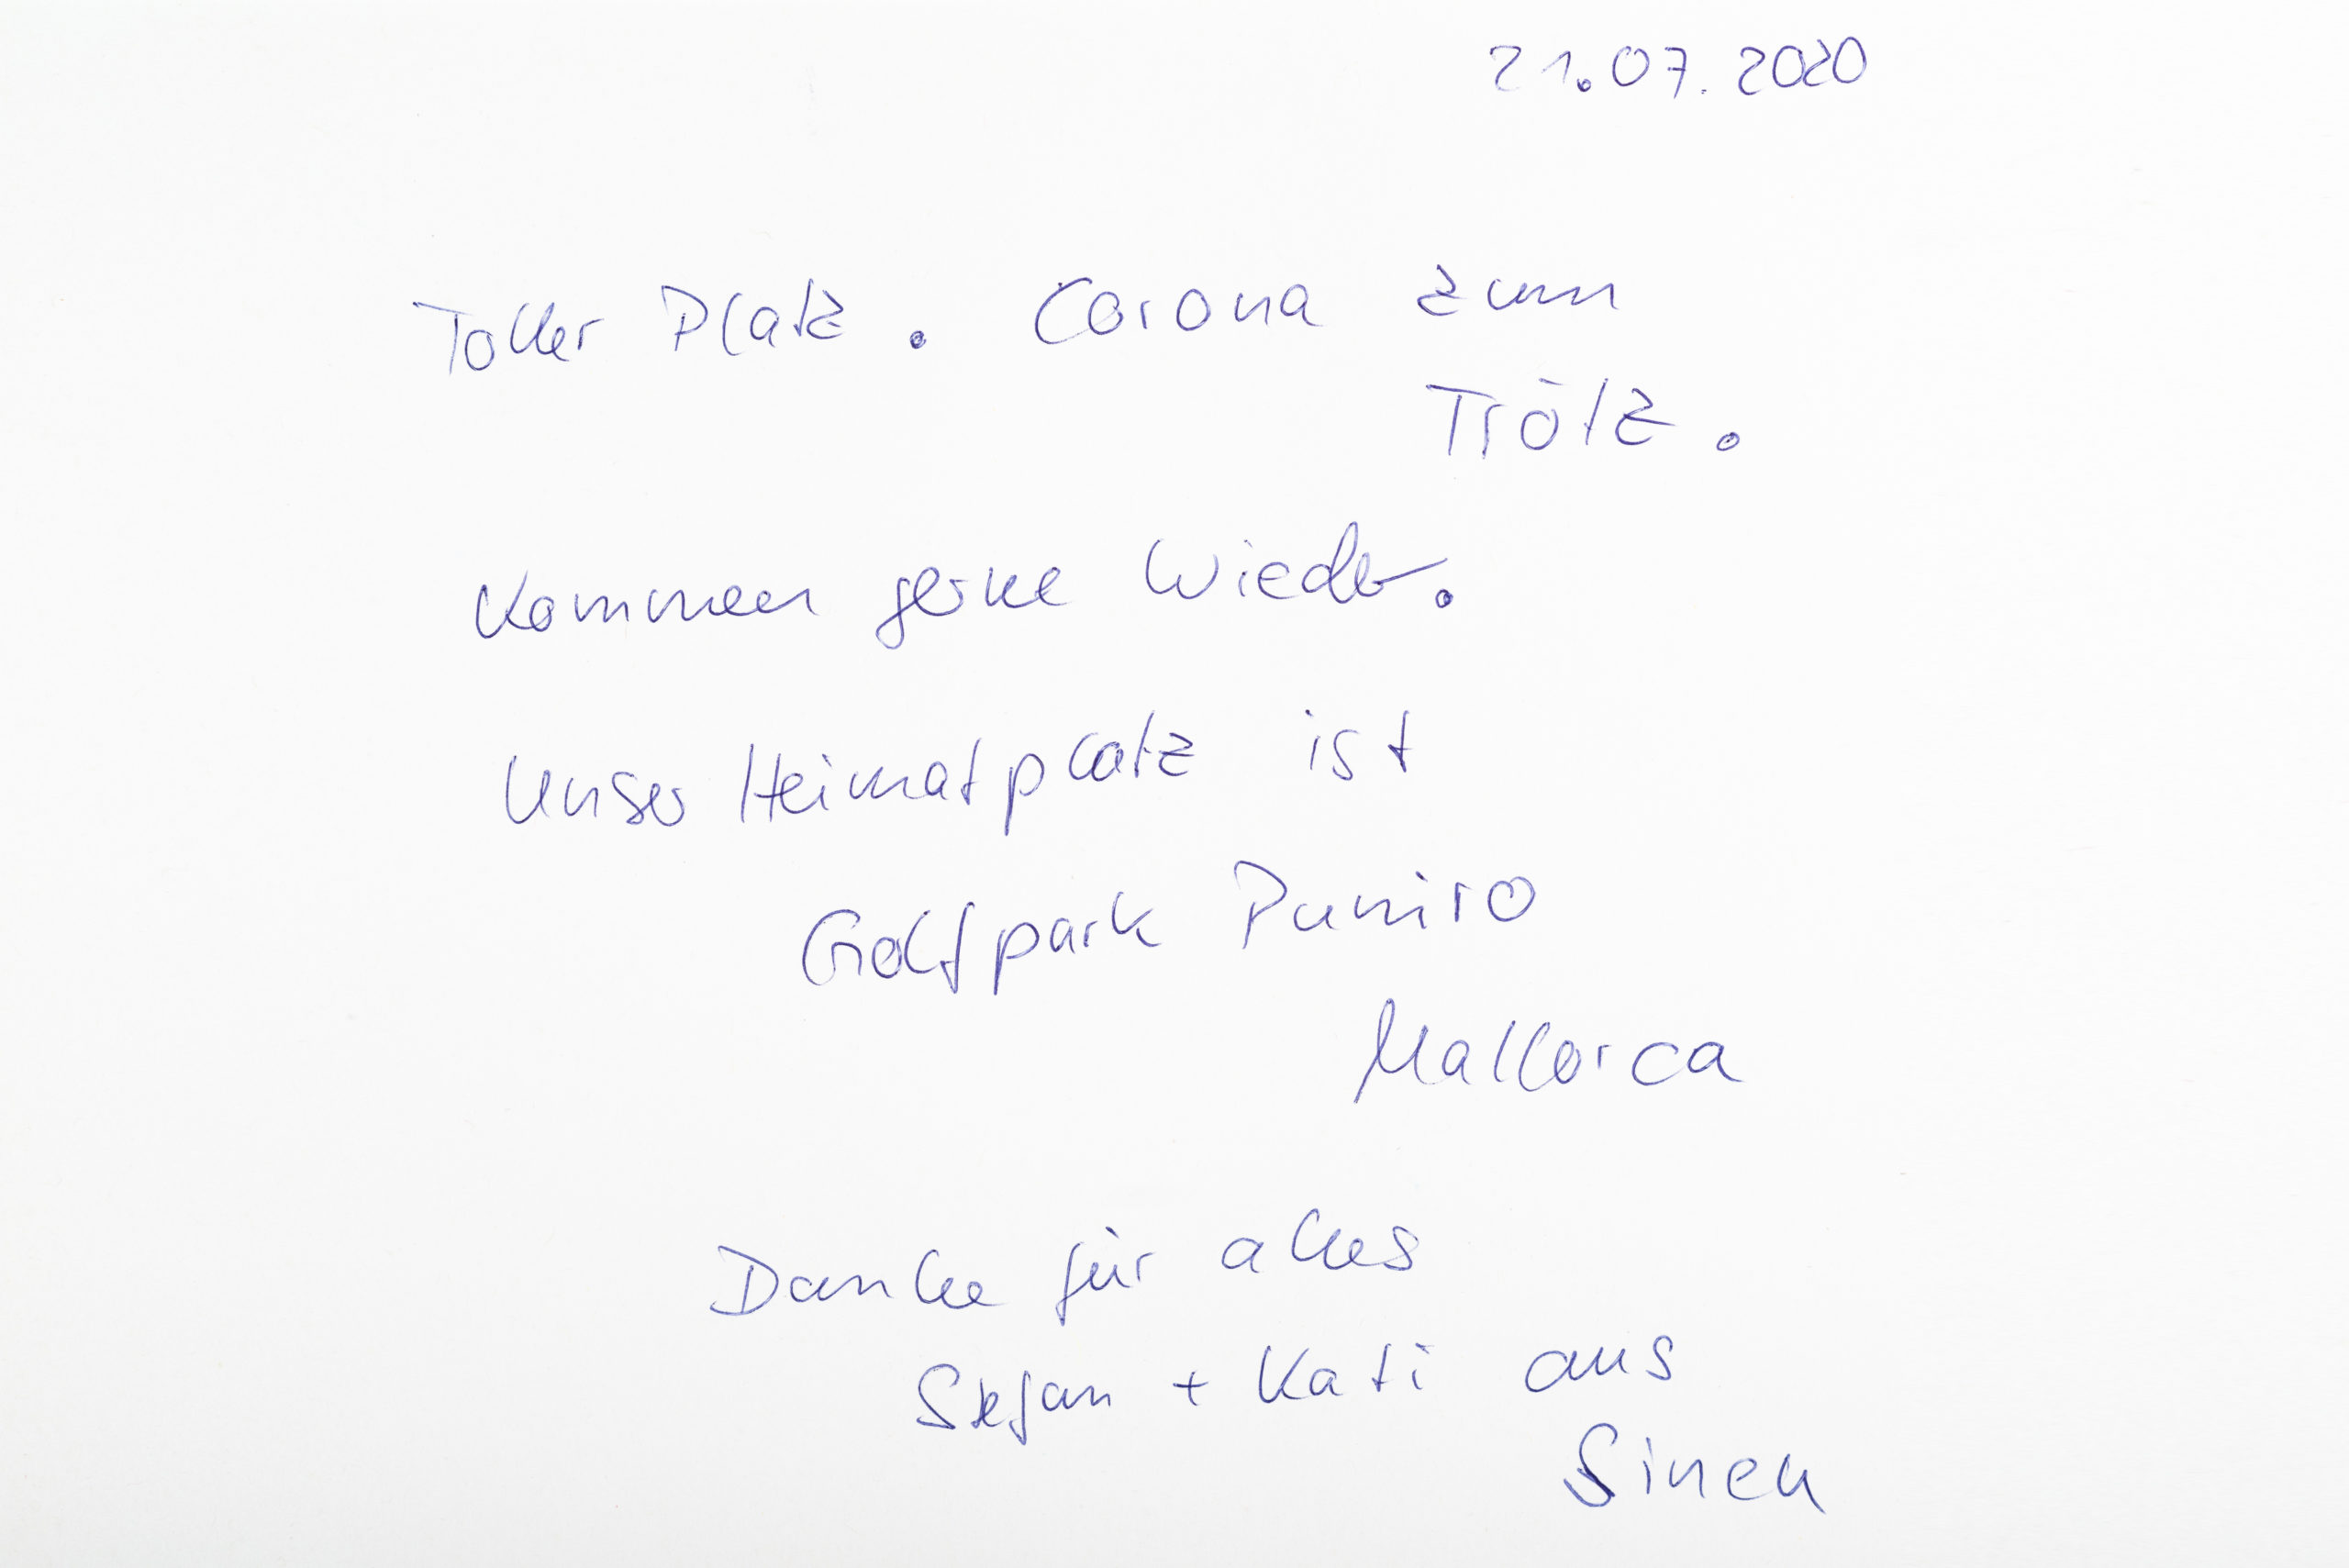 21.07.2020
Toller Platz. Corona zum
Trötz.
Kommen gerne wieder.
Unser Heimatplatz ist
Golfpark Puniro
Mallorca
Danke für alles
Stefan + Kati aus
Sineu